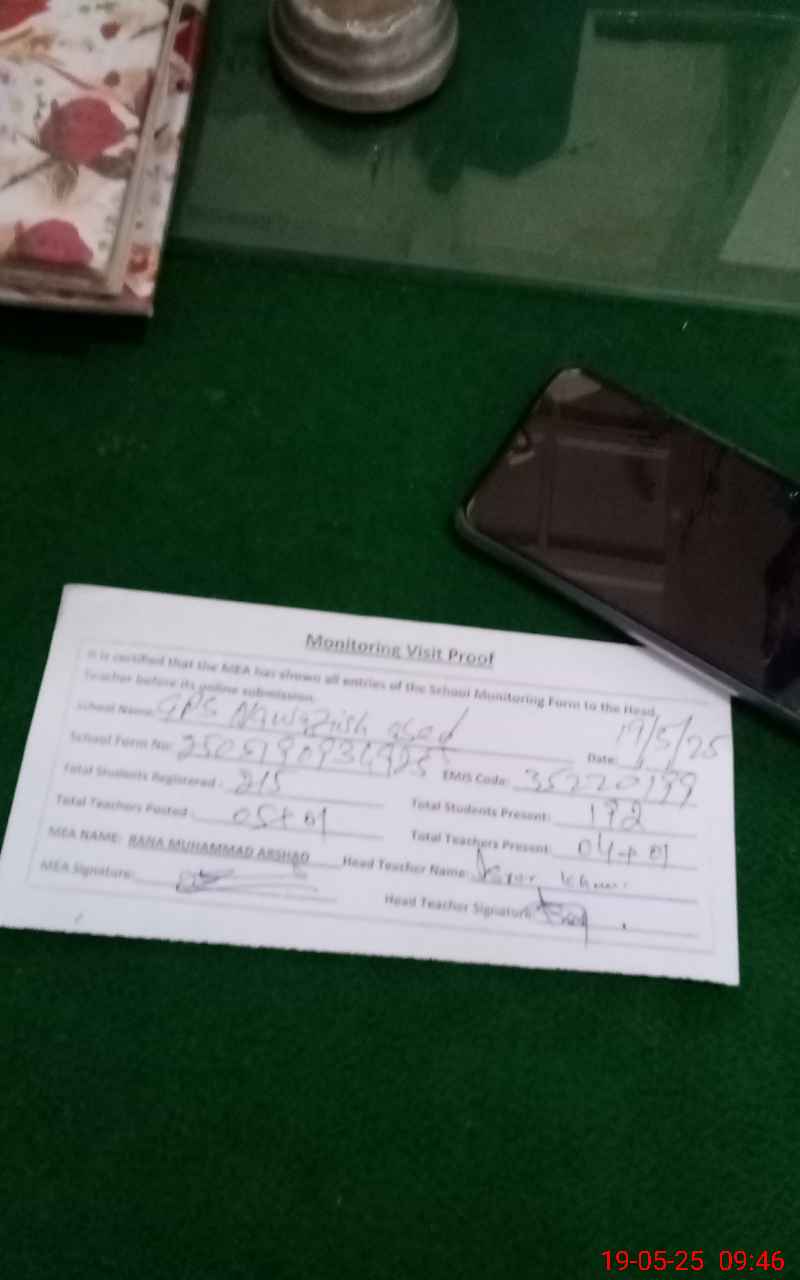 Monitoring Visit Proof
It is certified that the MEA has shown all entries of the School Monitoring Form to the Head
Teacher before its online submission.
School Name: GPS Nawazish abad Date: 19/5/25
School Form No: EMIS Code: 35220199
Total Students Registered: 215 Total Students Present: 192
Total Teachers Posted: 05+01 Total Teachers Present: 04+01
MEA NAME: RANA MUHAMMAD ARSHAD Head Teacher Name:
MEA Signature: Head Teacher Signature:
19-05-25 09:46